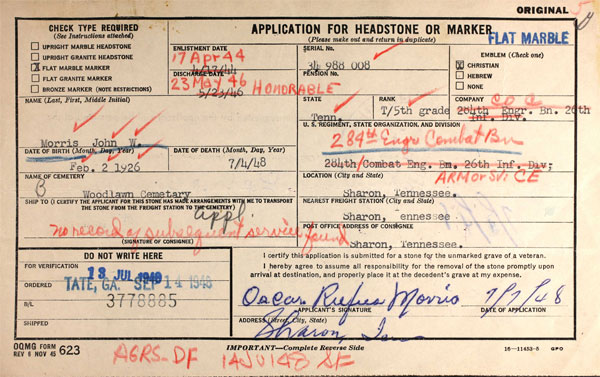 ORIGINAL
CHECK TYPE REQUIRED
(See Instructions attached)
UPRIGHT MARBLE HEADSTONE
UPRIGHT GRANITE HEADSTONE
X FLAT MARBLE MARKER
FLAT GRANITE MARKER
BRONZE MARKER (NOTE RESTRICTIONS)
APPLICATION FOR HEADSTONE OR MARKER
(Please make out and return in duplicate)
FLAT MARBLE
ENLISTMENT DATE
17 Apr 44
DISCHARGE DATE
23 May 46
5/23/46
HONORABLE
SERIAL No.
34 988 008
PENSION No.
EMBLEM (Check one)
X CHRISTIAN
HEBREW
NONE
STATE
Tenn.
RANK
T/5th grade
COMPANY
CO C
284th Engr. Bn. 26th
Inf. Div.
NAME (Last, First, Middle Initial)
Morris John W.
U. S. REGIMENT, STATE ORGANIZATION, AND DIVISION
284th Engr Combat Bn
284th/Combat Eng. Bm. 26th Inf. Div;
DATE OF BIRTH (Month, Day, Year)
Feb. 2 1926
DATE OF DEATH (Month, Day, Year)
7/4/48
NAME OF CEMETERY
Woodlawn Cemetary
LOCATION (City and State)
Sharon, Tennessee.
SHIP TO (I CERTIFY THE APPLICANT FOR THIS STONE HAS MADE ARRANGEMENTS WITH ME TO TRANSPORT
THE STONE FROM THE FREIGHT STATION TO THE CEMETERY)
appl.
NEAREST FREIGHT STATION (City and State)
Sharon, Tennessee
no record of subsequent service found
(SIGNATURE OF CONSIGNEE)
POST OFFICE ADDRESS OF CONSIGNEE
Sharon, Tennessee.
DO NOT WRITE HERE
FOR VERIFICATION
13 JUL 1948
ORDERED
TATE, GA. SEP 14 1948
B/L
3778885
SHIPPED
I certify this application is submitted for a stone for the unmarked grave of a veteran.
I hereby agree to assume all responsibility for the removal of the stone promptly upon
arrival at destination, and properly place it at the decedent's grave at my expense.
Oscar Rufus Morris 7/7/48
APPLICANT'S SIGNATURE DATE OF APPLICATION
ADDRESS (Street, City, State)
Sharon, Tenn
OQMG FORM
REV 6 NOV 45 623
IMPORTANT—Complete Reverse Side
16—11453-5 GPO
AGRS-DF